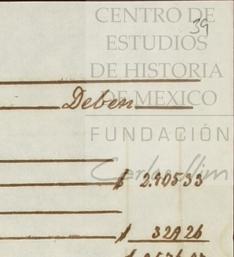 CENTRO DE
39
ESTUDIOS
DE HISTORIA
Deben
DE MEXICO
FUNDACIÓN
Carlos Slim
$ 2.905 33
$ 329 26